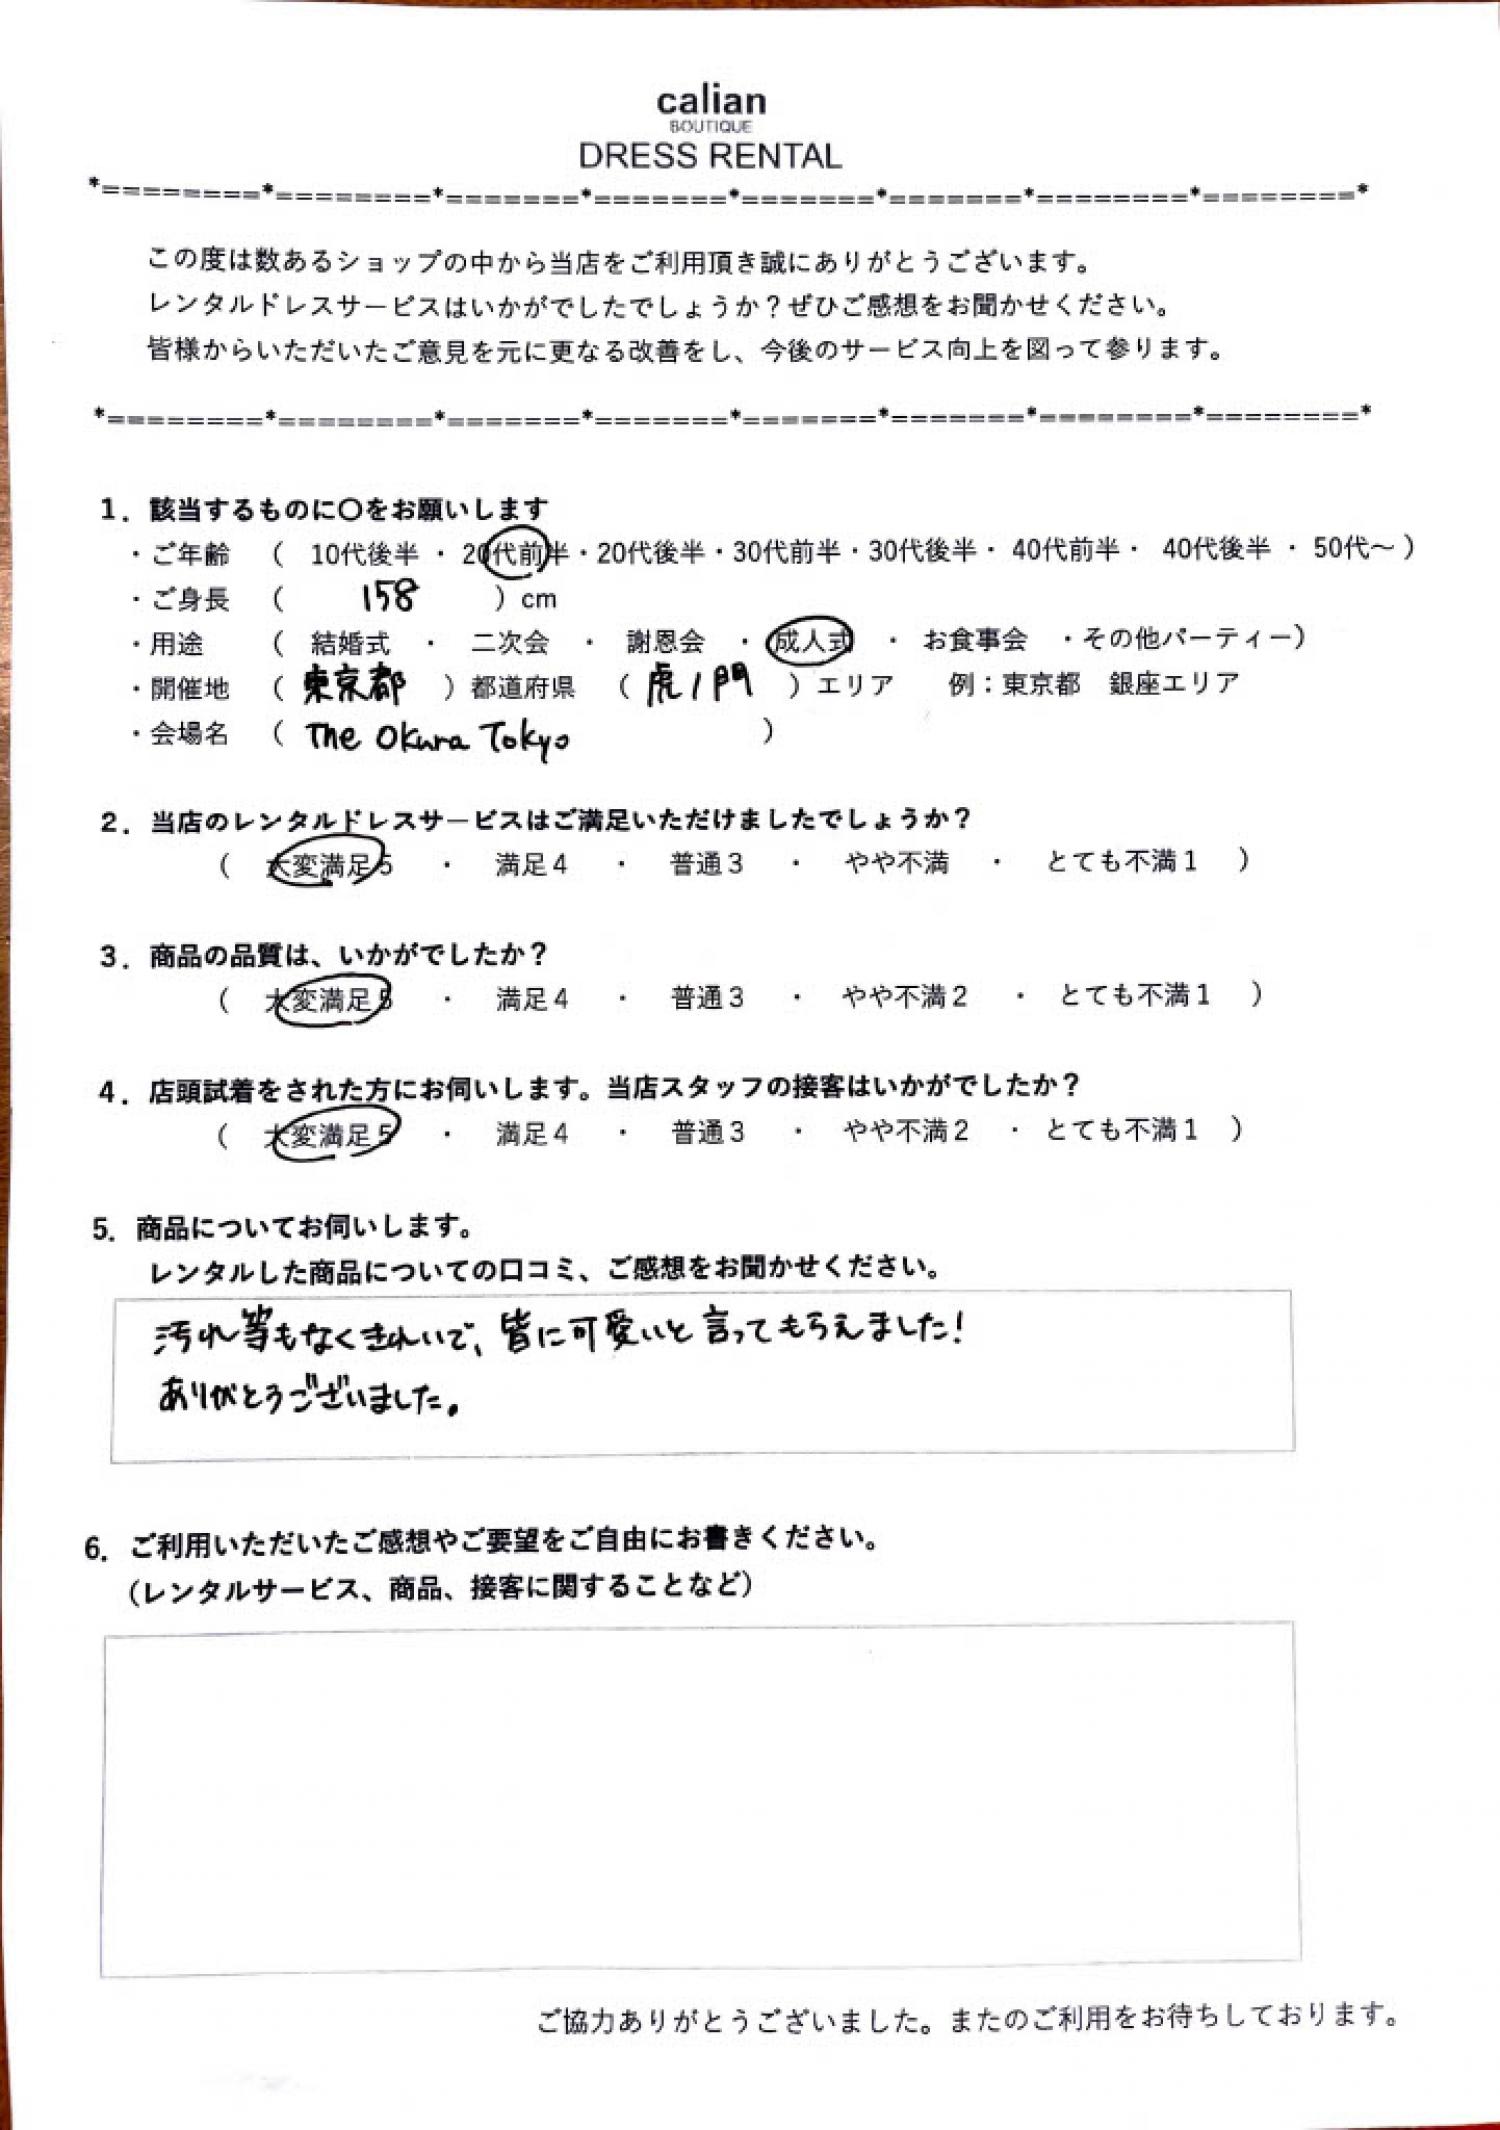 calian
BOUTIQUE
DRESS RENTAL
*========*========*=======*=======*=======*=======*========*========*
この度は数あるショップの中から当店をご利用頂き誠にありがとうございます。
レンタルドレスサービスはいかがでしたでしょうか？ぜひご感想をお聞かせください。
皆様からいただいたご意見を元に更なる改善をし、今後のサービス向上を図って参ります。
*========*========*=======*=======*=======*=======*========*========*
1．該当するものに〇をお願いします
・ご年齢 （ 10代後半 ・ 20代前半・20代後半・30代前半・30代後半・ 40代前半・ 40代後半 ・ 50代～ ）
・ご身長 （ 158 ）cm
・用途 （ 結婚式 ・ 二次会 ・ 謝恩会 ・ 成人式 ・ お食事会 ・その他パーティー）
・開催地 （ 東京都 ）都道府県 （ 虎ノ門 ）エリア 例：東京都 銀座エリア
・会場名 （ The Okura Tokyo ）
2．当店のレンタルドレスサービスはご満足いただけましたでしょうか？
（ 大変満足5 ・ 満足4 ・ 普通3 ・ やや不満 ・ とても不満1 ）
3．商品の品質は、いかがでしたか？
（ 大変満足5 ・ 満足4 ・ 普通3 ・ やや不満2 ・ とても不満1 ）
4．店頭試着をされた方にお伺いします。当店スタッフの接客はいかがでしたか？
（ 大変満足5 ・ 満足4 ・ 普通3 ・ やや不満2 ・ とても不満1 ）
5．商品についてお伺いします。
レンタルした商品についての口コミ、ご感想をお聞かせください。
汚れ等もなくきれいで、皆に可愛いと言ってもらえました!
ありがとうございました。
6．ご利用いただいたご感想やご要望をご自由にお書きください。
（レンタルサービス、商品、接客に関することなど）
ご協力ありがとうございました。またのご利用をお待ちしております。